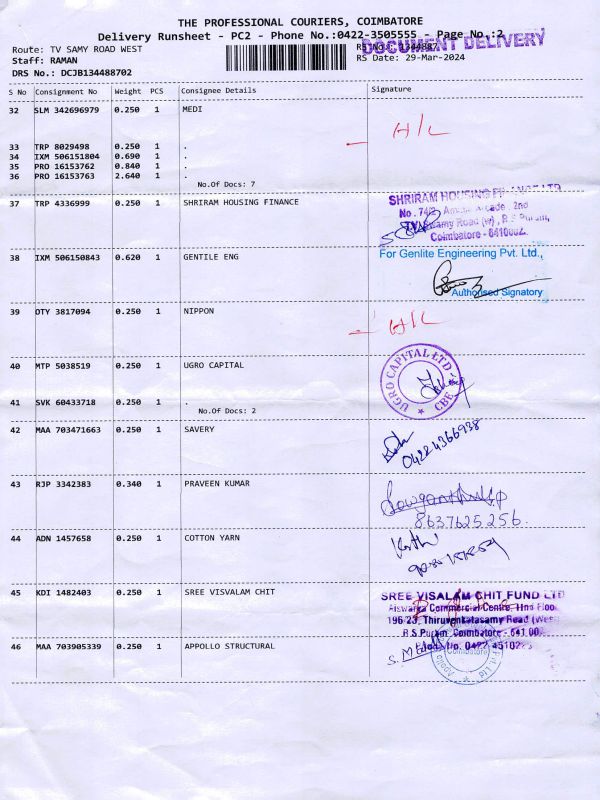 THE PROFESSIONAL COURIERS, COIMBATORE
Delivery Runsheet - PC2 - Phone No.:0422-3505555 - Page No.:2
DOCUMENT DELIVERY
Route: TV SAMY ROAD WEST
Staff: RAMAN
RS Date: 29-Mar-2024
DRS No.: DCJB134488702
S No Consignment No Weight PCS Consignee Details Signature
32 SLM 342696979 0.250 1 MEDI
H/L
33 TRP 8029498 0.250 1 .
34 IXM 506151804 0.690 1 .
35 PRO 16153762 0.840 1 .
36 PRO 16153763 2.640 1 .
No.Of Docs: 7
37 TRP 4336999 0.250 1 SHRIRAM HOUSING FINANCE
SHRIRAM HOUSING FINANCE LTD
No. 74/2, Arcade, 2nd
Swamy Road (w), R.S Puram,
Coimbatore - 641002.
38 IXM 506150843 0.620 1 GENTILE ENG
For Genlite Engineering Pvt. Ltd.,
Authorised Signatory
39 OTY 3817094 0.250 1 NIPPON
H/L
40 MTP 5038519 0.250 1 UGRO CAPITAL
UGRO CAPITAL LTD
CBE
41 SVK 60433718 0.250 1 .
No.Of Docs: 2
42 MAA 703471663 0.250 1 SAVERY
0422 4366938
43 RJP 3342383 0.340 1 PRAVEEN KUMAR
8637625256
44 ADN 1457658 0.250 1 COTTON YARN
45 KDI 1482403 0.250 1 SREE VISVALAM CHIT
SREE VISALAM CHIT FUND LTD
Aiswarya Commercial Centre, IInd Floo
196/23, Thiruvenkatasamy Road (West
R.S.Puram, Coimbatore - 641 00
46 MAA 703905339 0.250 1 APPOLLO STRUCTURAL
Coimbatore